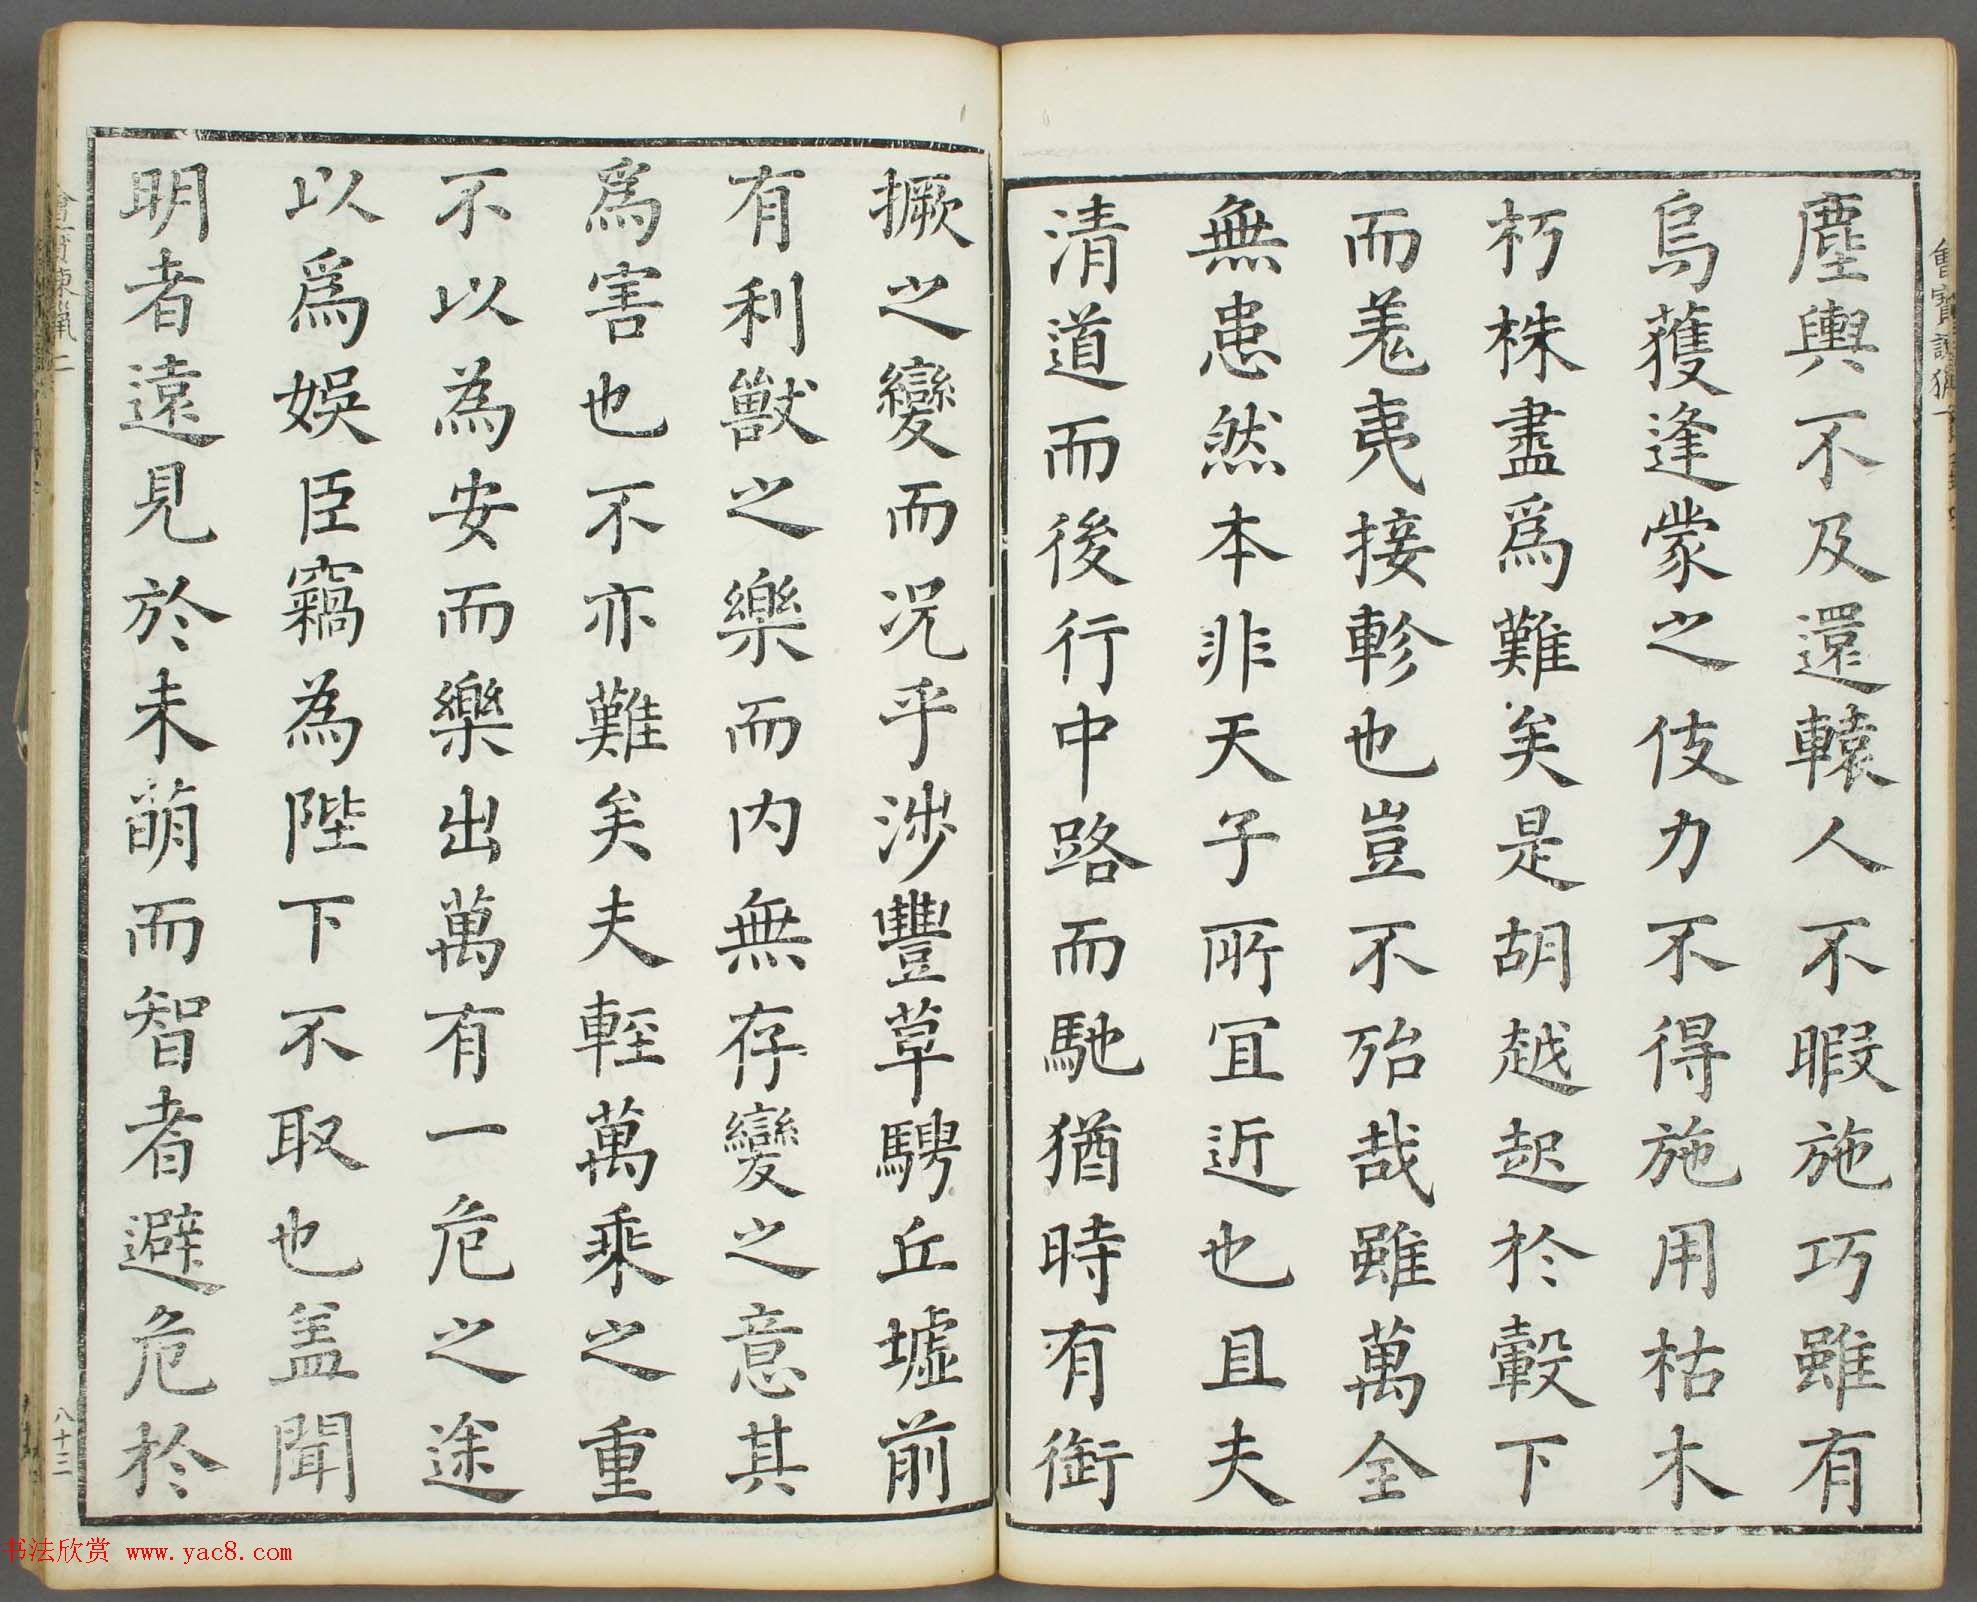 塵輿不及還轅人不暇施巧雖有
烏獲逢蒙之伎力不得施用枯木
朽株盡爲難矣是胡越起於轂下
而羌夷接軫也豈不殆哉雖萬全
無患然本非天子所宜近也且夫
清道而後行中路而馳猶時有銜
橛之變而况乎涉豐草騁丘墟前
有利獸之樂而内無存變之意其
爲害也不亦難矣夫輕萬乘之重
不以為安而樂出萬有一危之途
以爲娛臣竊為陛下不取也盖聞
明者遠見於未萌而智者避危於
八十三
书法欣赏 www.yac8.com